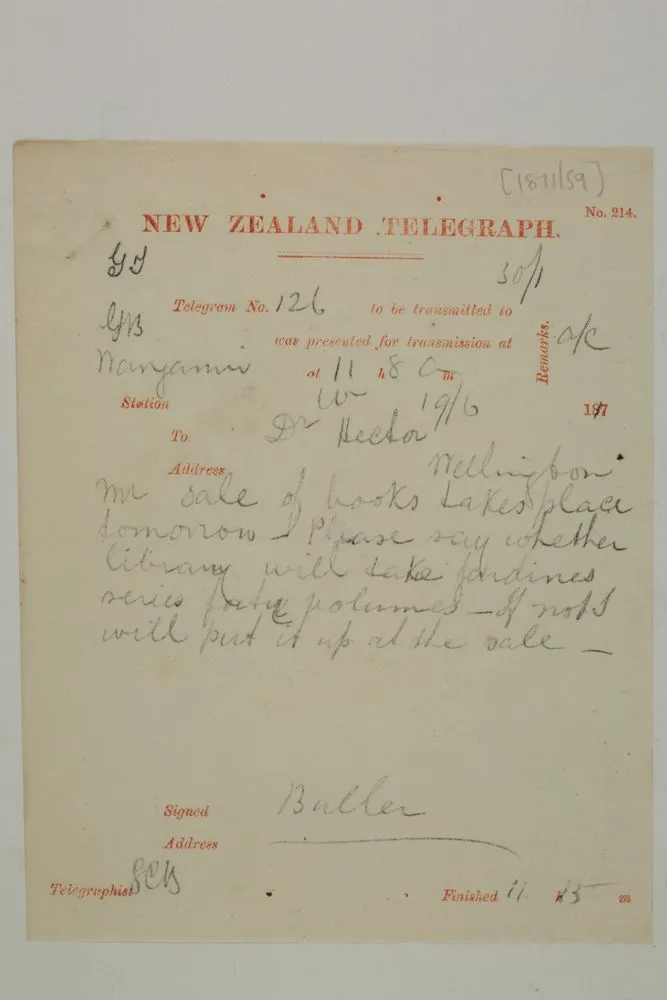 [1871/59]
No. 214.
NEW ZEALAND TELEGRAPH.
GJ 30/1
Telegram No. 126 to be transmitted to
GB
was presented for transmission at
Remarks. O/C
Wanganui at 11 h 8 a m
Station W 19/6 1871
To Dr Hector
Address Wellington
My sale of books takes place
tomorrow – Please say whether
library will take Jardines
series forty volumes – If not I
will put it up at the sale –
Signed Buller
Address
Telegraphist
Finished 11 h 15 m